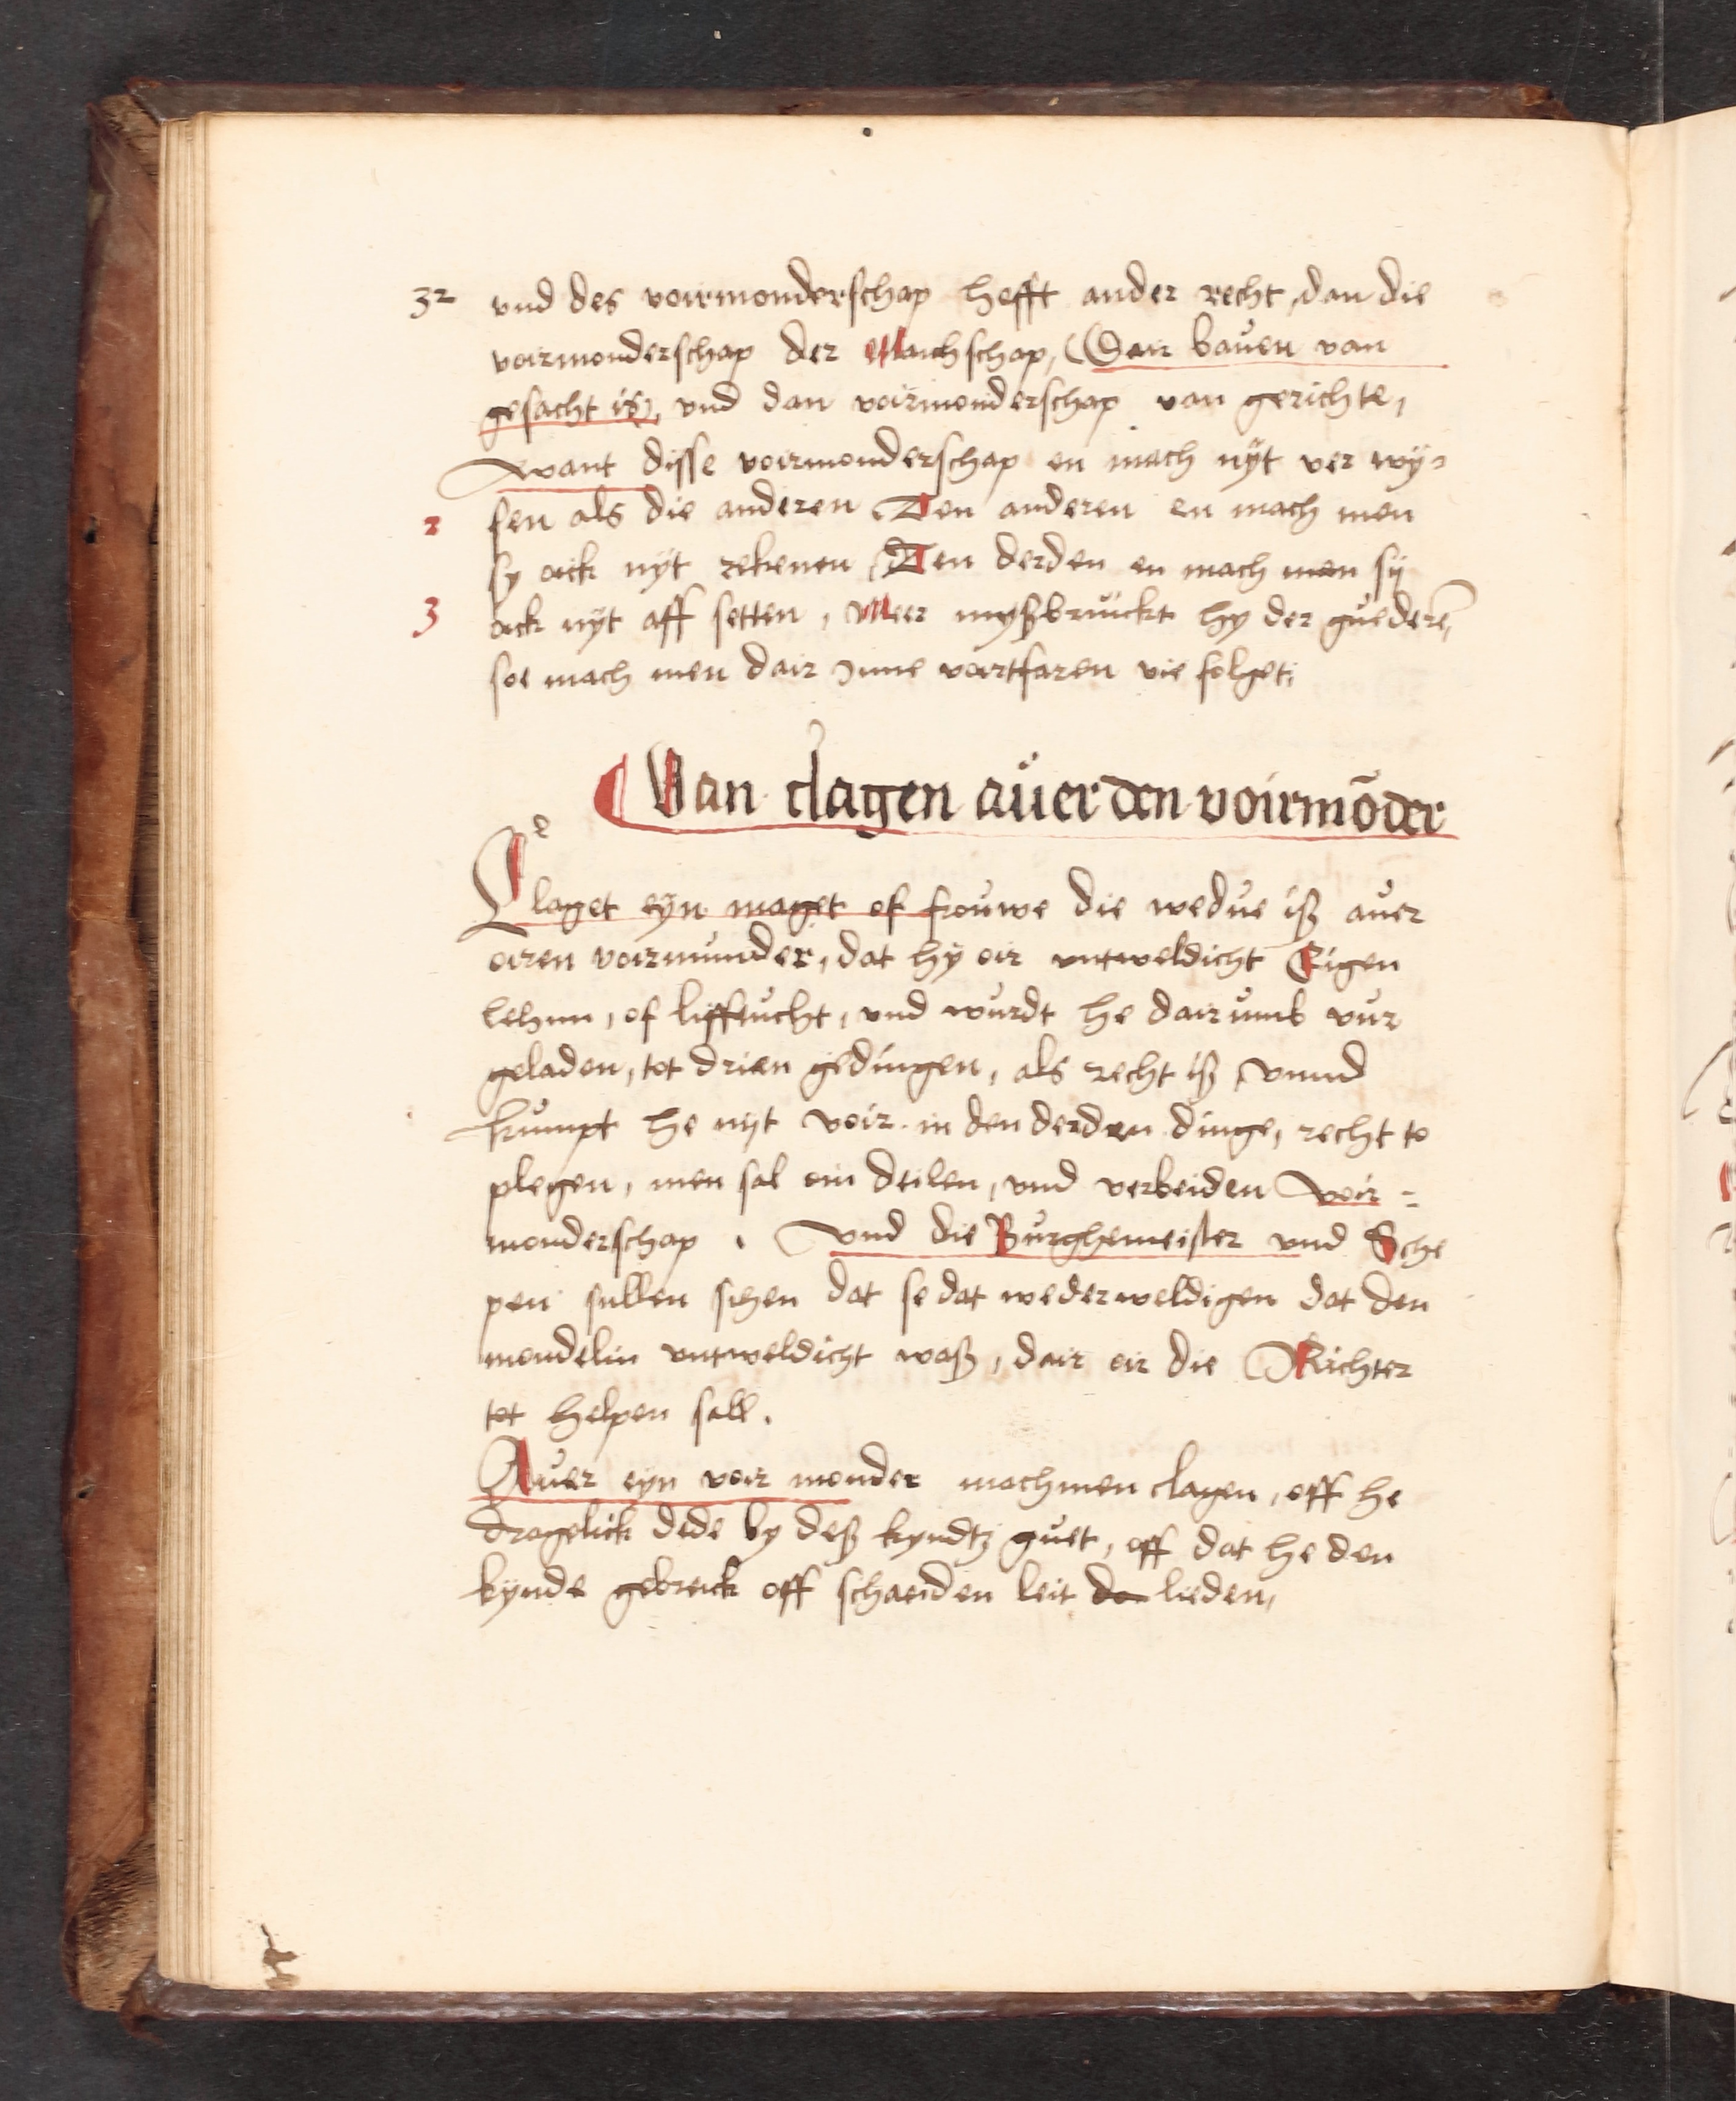 32 und des voirmonderschap hefft ander recht, dan die
voirmonderschap der Maichschap, (Dair bauen van
gesacht iß), und dan voirmonderschap van gerichte,
want disse voirmonderschap en mach nyt ver wy=
2 sen als die anderen, Den anderen en mach men
sy oick nyt rekenen, Den derden en mach men sy
3 oick nyt aff setten, Meer mysbruickt hy der guederē,
soe mach men dair Inne voirtfaren vie folget,
Van clagen auer den voirmōder
Claget eyn maget of frouwe die wedue iß auer
oiren voirmunder, dat hy oir untweldicht Eigen
lehnn, of lifftucht, und wurdt he dairumb vur
geladen, tot drien gedingen, als recht iß, unnd
kumpt he nyt voir in den derden dinge, recht to
plegen, men sal om deilen, und verbeiden voir=
monderschap. Und die Burghemeister und Sche
pen sullen sihen dat se dat wederweldigen dat den
mondelin untweldicht waß, dair oir die Richter
tot helpen sall.
Auer eyn voir monder machmen clagen, off he
dragelick dede by deß kyndtz guet, off dat he den
kynde gebreick off schaeiden leit do lieden,